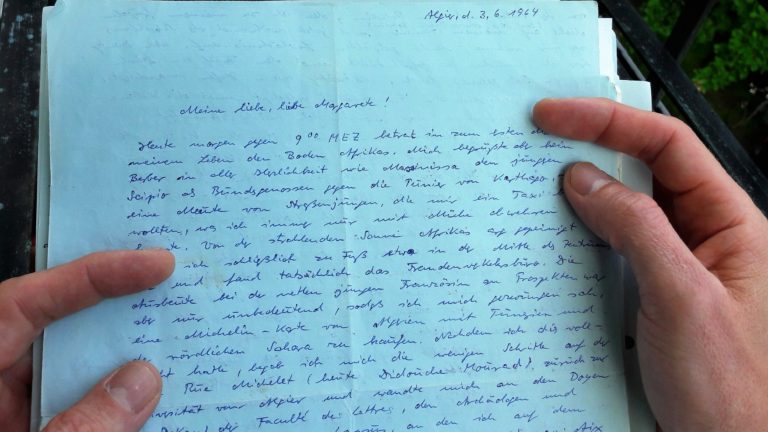 Algier, d. 3. 6. 1964
Meine liebe, liebe Margarete!
Heute morgen gegen 9⁰⁰ MEZ betrat ich zum ersten
meinem Leben den Boden Afrikas. Mich begrüßte aber kein
Berber in aller Herzlichkeit wie Massinissa den jüngeren
Scipio als Bundesgenossen gegen die Punier von Karthago,
eine Meute von Straßenjungen, die mir ein Taxi
wollten, was ich immer nur mit Mühe abwehren
Von der strahlenden Sonne Afrikas auf gepeinigt
ich schließlich zu Fuß etwa in der Mitte des Zentrums
und fand tatsächlich das Fremdenverkehrsbüro. Die
Ausbeute bei der netten jungen Französin an Prospekten war
aber nur unbedeutend, sodaß ich mich gezwungen sah,
eine Michelin-Karte von Algerien mit Tunesien und
der nördlichen Sahara zu kaufen. Nachdem ich dies voll-
hatte, begab ich mich die wenigen Schritte auf der
Rue Michelet (heute Didouche Mourad) zurück zur
Universität von Algier und wandte mich an den Doyen
der Faculté des Lettres, den Archäologen und
an den ich auf dem
Aix